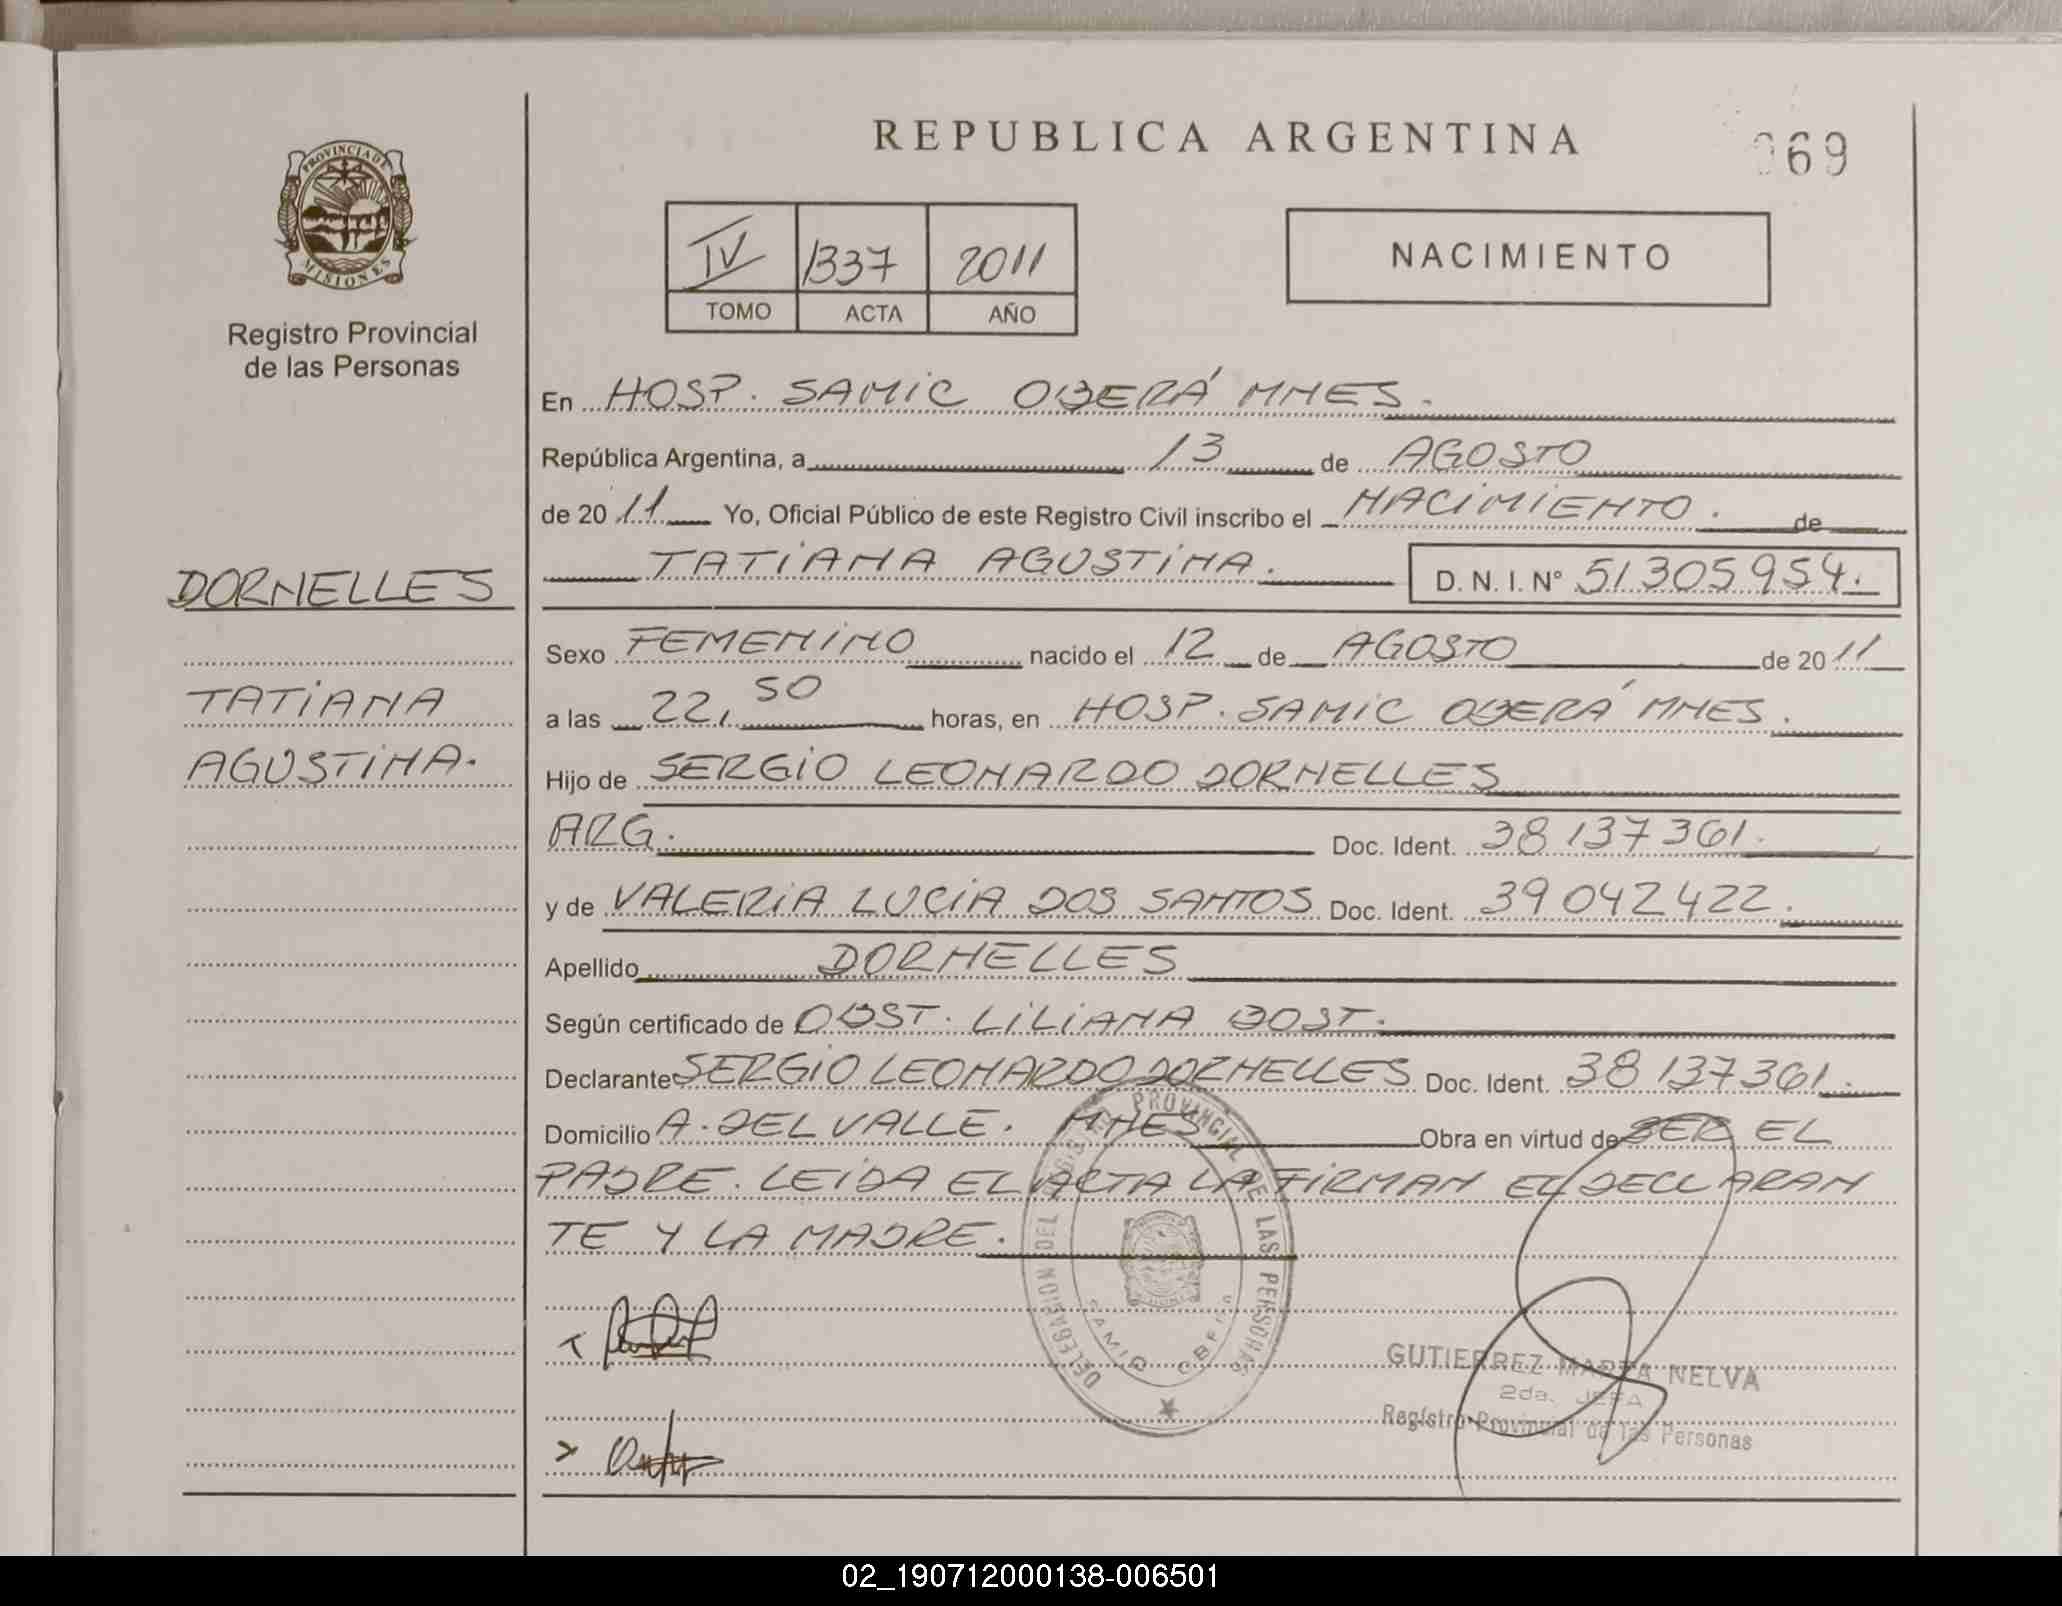 REPUBLICA ARGENTINA
069
PROVINCIA DE
MISIONES
Registro Provincial
de las Personas
IV 1337 2011
TOMO ACTA AÑO
NACIMIENTO
En HOSP. SAMIC OBERÁ MNES.
República Argentina, a 13 de AGOSTO
de 2011 Yo, Oficial Público de este Registro Civil inscribo el NACIMIENTO. de
TATIANA AGUSTINA. D. N. I. N° 51.305.954.
DORNELLES
TATIANA
AGUSTINA.
Sexo FEMENINO nacido el 12 de AGOSTO de 2011
a las 22,50 horas, en HOSP. SAMIC OBERÁ MNES.
Hijo de SERGIO LEONARDO DORNELLES
ARG. Doc. Ident. 38 137 361.
y de VALERIA LUCIA DOS SANTOS Doc. Ident. 39 042 422.
Apellido DORNELLES
Según certificado de OBST. LILIANA BOST.
Declarante SERGIO LEONARDO DORNELLES Doc. Ident. 38 137 361.
Domicilio A. DEL VALLE. MNES Obra en virtud de SER EL
PADRE. LEIDA EL ACTA LA FIRMAN EL DECLARAN
TE Y LA MADRE.
DELEGACION DEL REGISTRO PROVINCIAL DE LAS PERSONAS
SAMIC OBERA
GUTIERREZ MARTA NELVA
2da. JEFA
Registro Provincial de las Personas
02_190712000138-006501